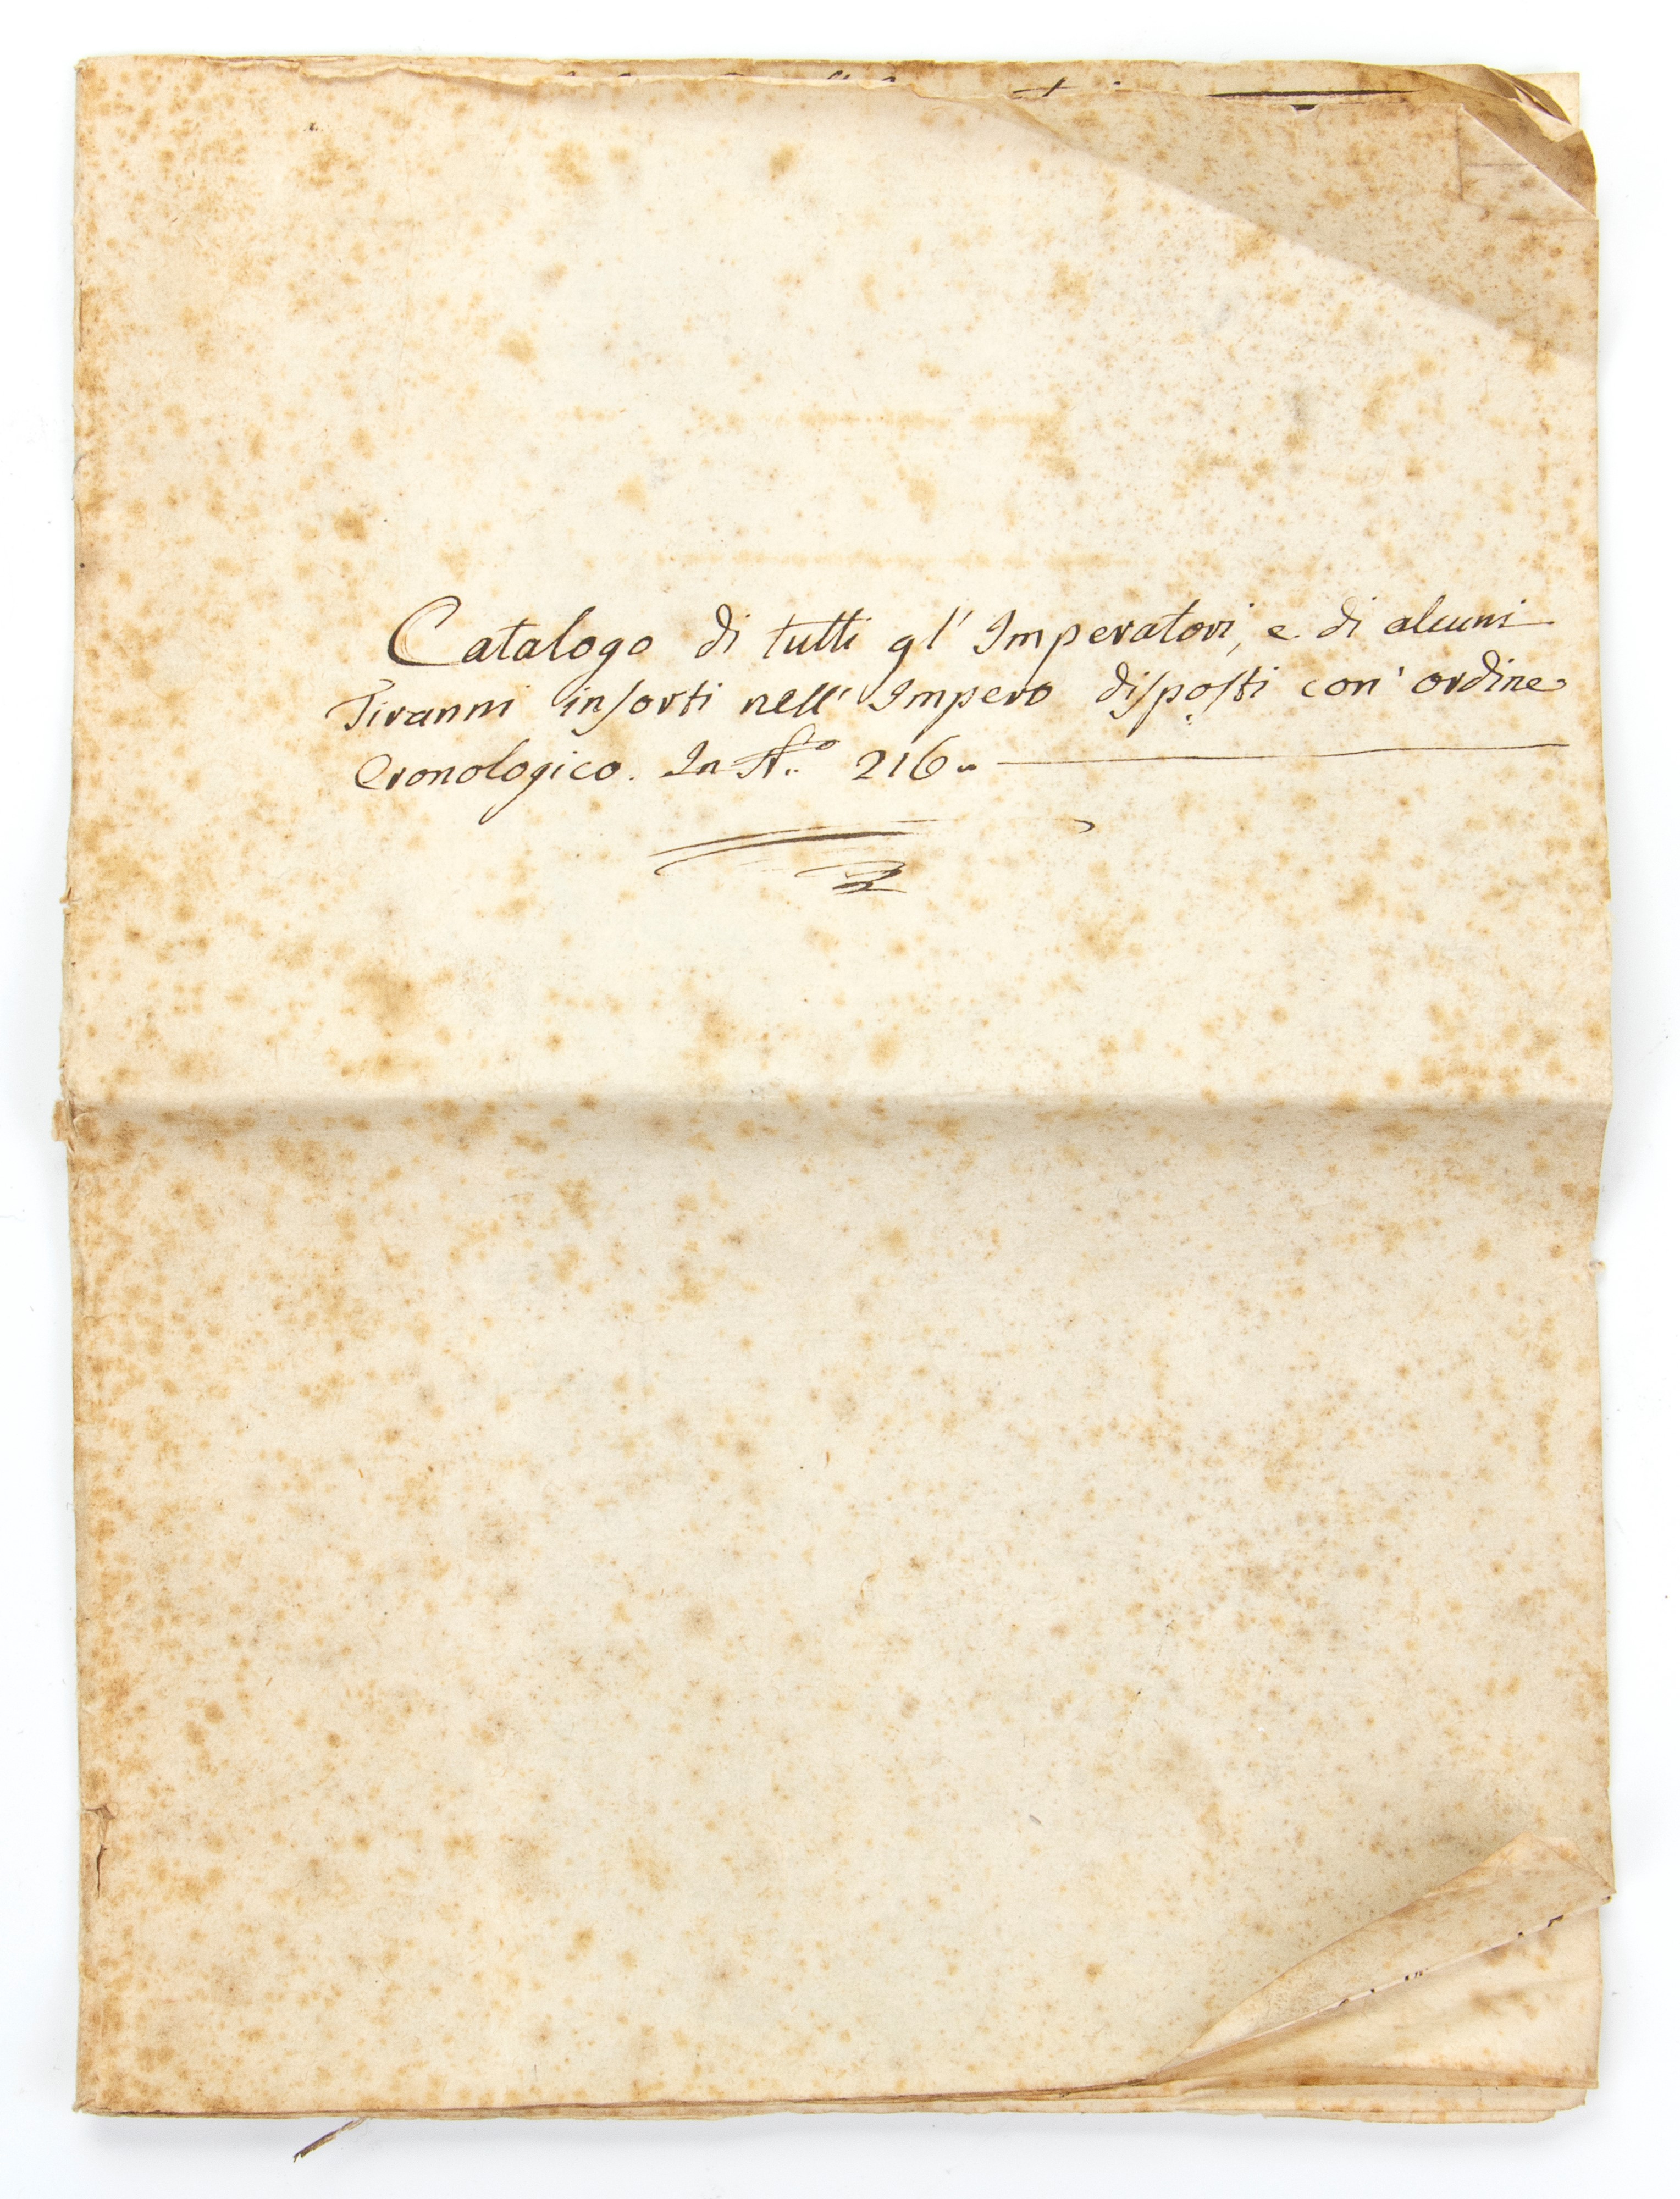 Catalogo di tutti gl' Imperatori, e di alcuni
Tiranni insorti nell' Impero disposti con' ordine
Cronologico. In N.o 216.